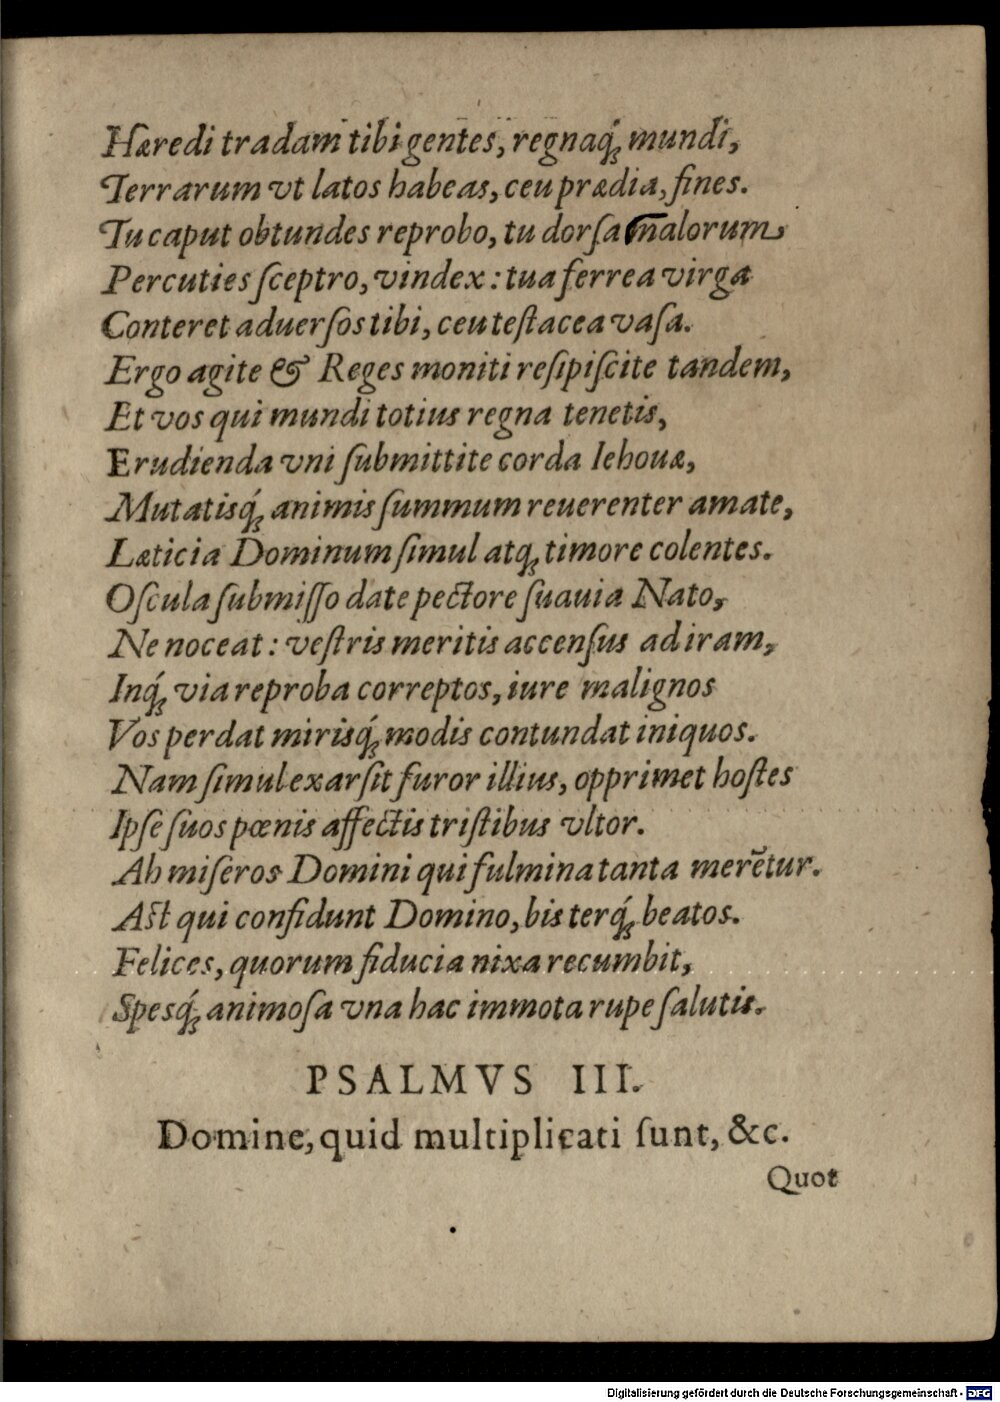 Hæredi tradam tibi gentes, regnaq́ꝫ mundi,
Terrarum vt latos habeas, ceu prædia, fines.
Tu caput obtundes reprobo, tu dorſa malorum
Percuties ſceptro, vindex: tua ferrea virga
Conteret aduerſos tibi, ceu teſtacea vaſa.
Ergo agite & Reges moniti reſipiſcite tandem,
Et vos qui mundi totius regna tenetis,
Erudienda vni ſubmittite corda Iehouæ,
Mutatisq́ꝫ animis ſummum reuerenter amate,
Læticia Dominum ſimul atqꝫ timore colentes.
Oſcula ſubmiſſo date pectore ſuauia Nato,
Ne noceat: veſtris meritis accenſus ad iram,
Inq́ꝫ via reproba correptos, iure malignos
Vos perdat mirisq́ꝫ modis contundat iniquos.
Nam ſimul exarſit furor illius, opprimet hoſtes
Ipſe ſuos pœnis affectis triſtibus vltor.
Ah miſeros Domini qui fulmina tanta merẽtur.
Aſt qui confidunt Domino, bis terq́ꝫ beatos.
Felices, quorum fiducia nixa recumbit,
Spesq́ꝫ animoſa vna hac immota rupe ſalutis.
PSALMVS III.
Domine, quid multiplicati ſunt, &c.
Quot
Digitalisierung gefördert durch die Deutsche Forschungsgemeinschaft - DFG